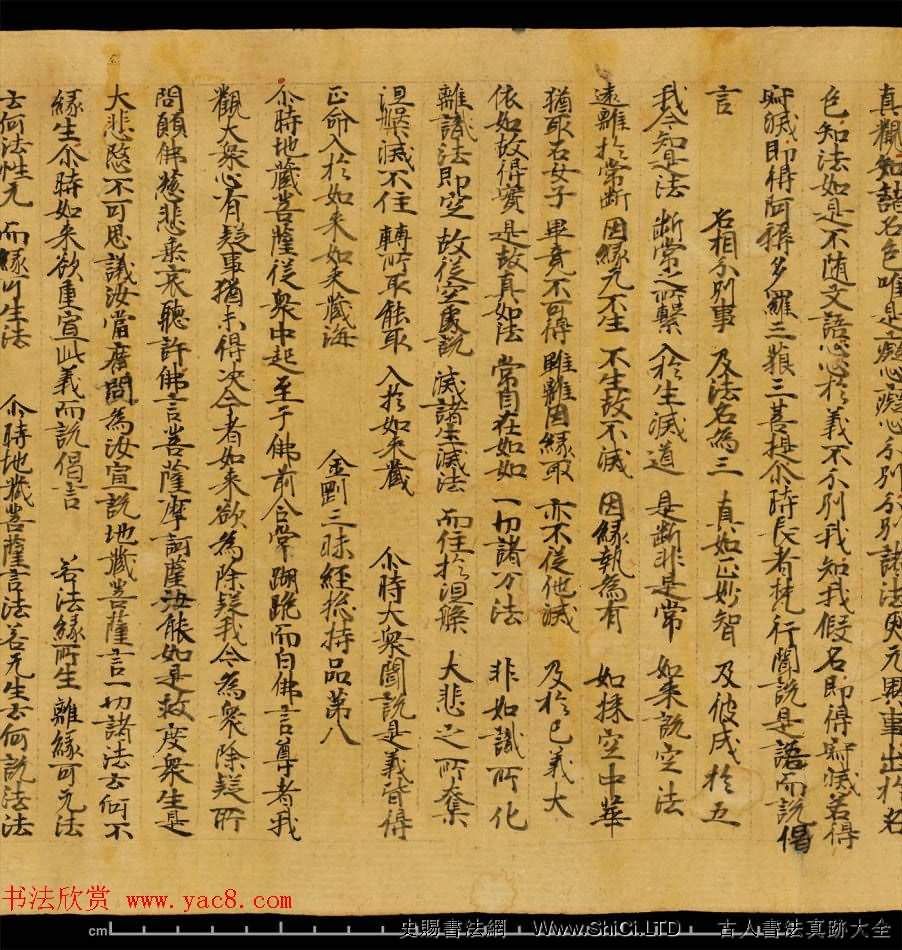 真觀知諸名色唯是癡心癡心分別分別諸法更无異事出於名
色知法如是不随文語心心於義不分別我知我假名即得寂滅若得
寂滅即得阿耨多羅三藐三菩提尒時長者梵行聞說是語而說偈
言　名相分別事　及法名為三　真如正妙智　及彼成於五
我今知是法　斷常之所繫　入於生滅道　是斷非是常　如来說空法
遠離於常斷　因緣无不生　不生故不滅　因緣執為有　如採空中華
猶取石女子　畢竟不可得　雖離因緣取　亦不從他滅　及於己義大
依如故得實　是故真如法　常自在如如　一切諸万法　非如識所化
離識法即空　故從空處說　滅諸生滅法　而住於涅槃　大悲之所奪
涅槃滅不住　轉所取能取　入於如来藏　尒時大衆聞說是義皆得
正命入於如来如来藏海　金剛三昧經揔持品第八
尒時地藏菩薩從衆中起至于佛前合掌蹦跪而白佛言尊者我
觀大衆心有疑事猶未得决今者如来欲為除疑我今為衆除疑所
問願佛慈悲垂哀聽許佛言菩薩摩訶薩汝能如是救度衆生是
大悲愍不可思議汝當廣問為汝宣說地藏菩薩言一切諸法云何不
緣生尒時如来欲重宣此義而說偈言　若法緣所生　離緣可无法
云何法性无　而緣可生法　尒時地藏菩薩言法若无生云何說法法
书法欣赏 www.yac8.com
cm
史賜書法網 www.ShiCi.LTD 古人書法真跡大全